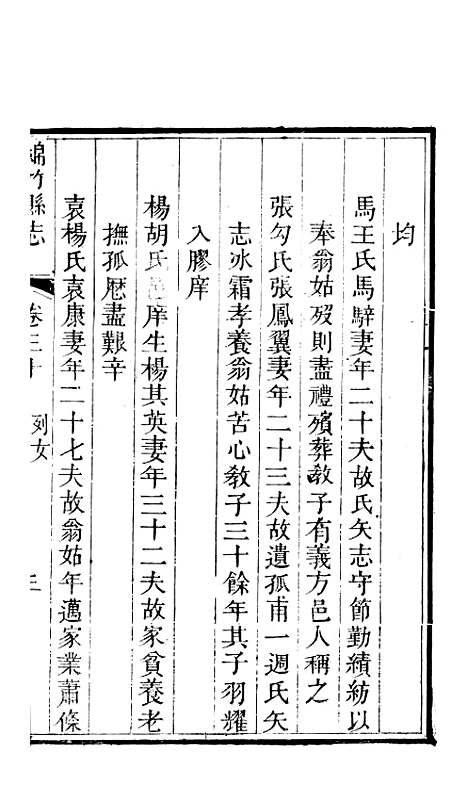 均
馬王氏馬騂妻年二十夫故氏矢志守節勤績紡以
奉翁姑歿則盡禮殯葬教子有義方邑人稱之
張勾氏張鳳翼妻年二十三夫故遺孤甫一週氏矢
志冰霜孝養翁姑苦心教子三十餘年其子羽耀
入膠庠
楊胡氏邑庠生楊其英妻年三十二夫故家貧養老
撫孤歷盡艱辛
袁楊氏袁康妻年二十七夫故翁姑年邁家業蕭條
綿竹縣志 卷三十 列女 三